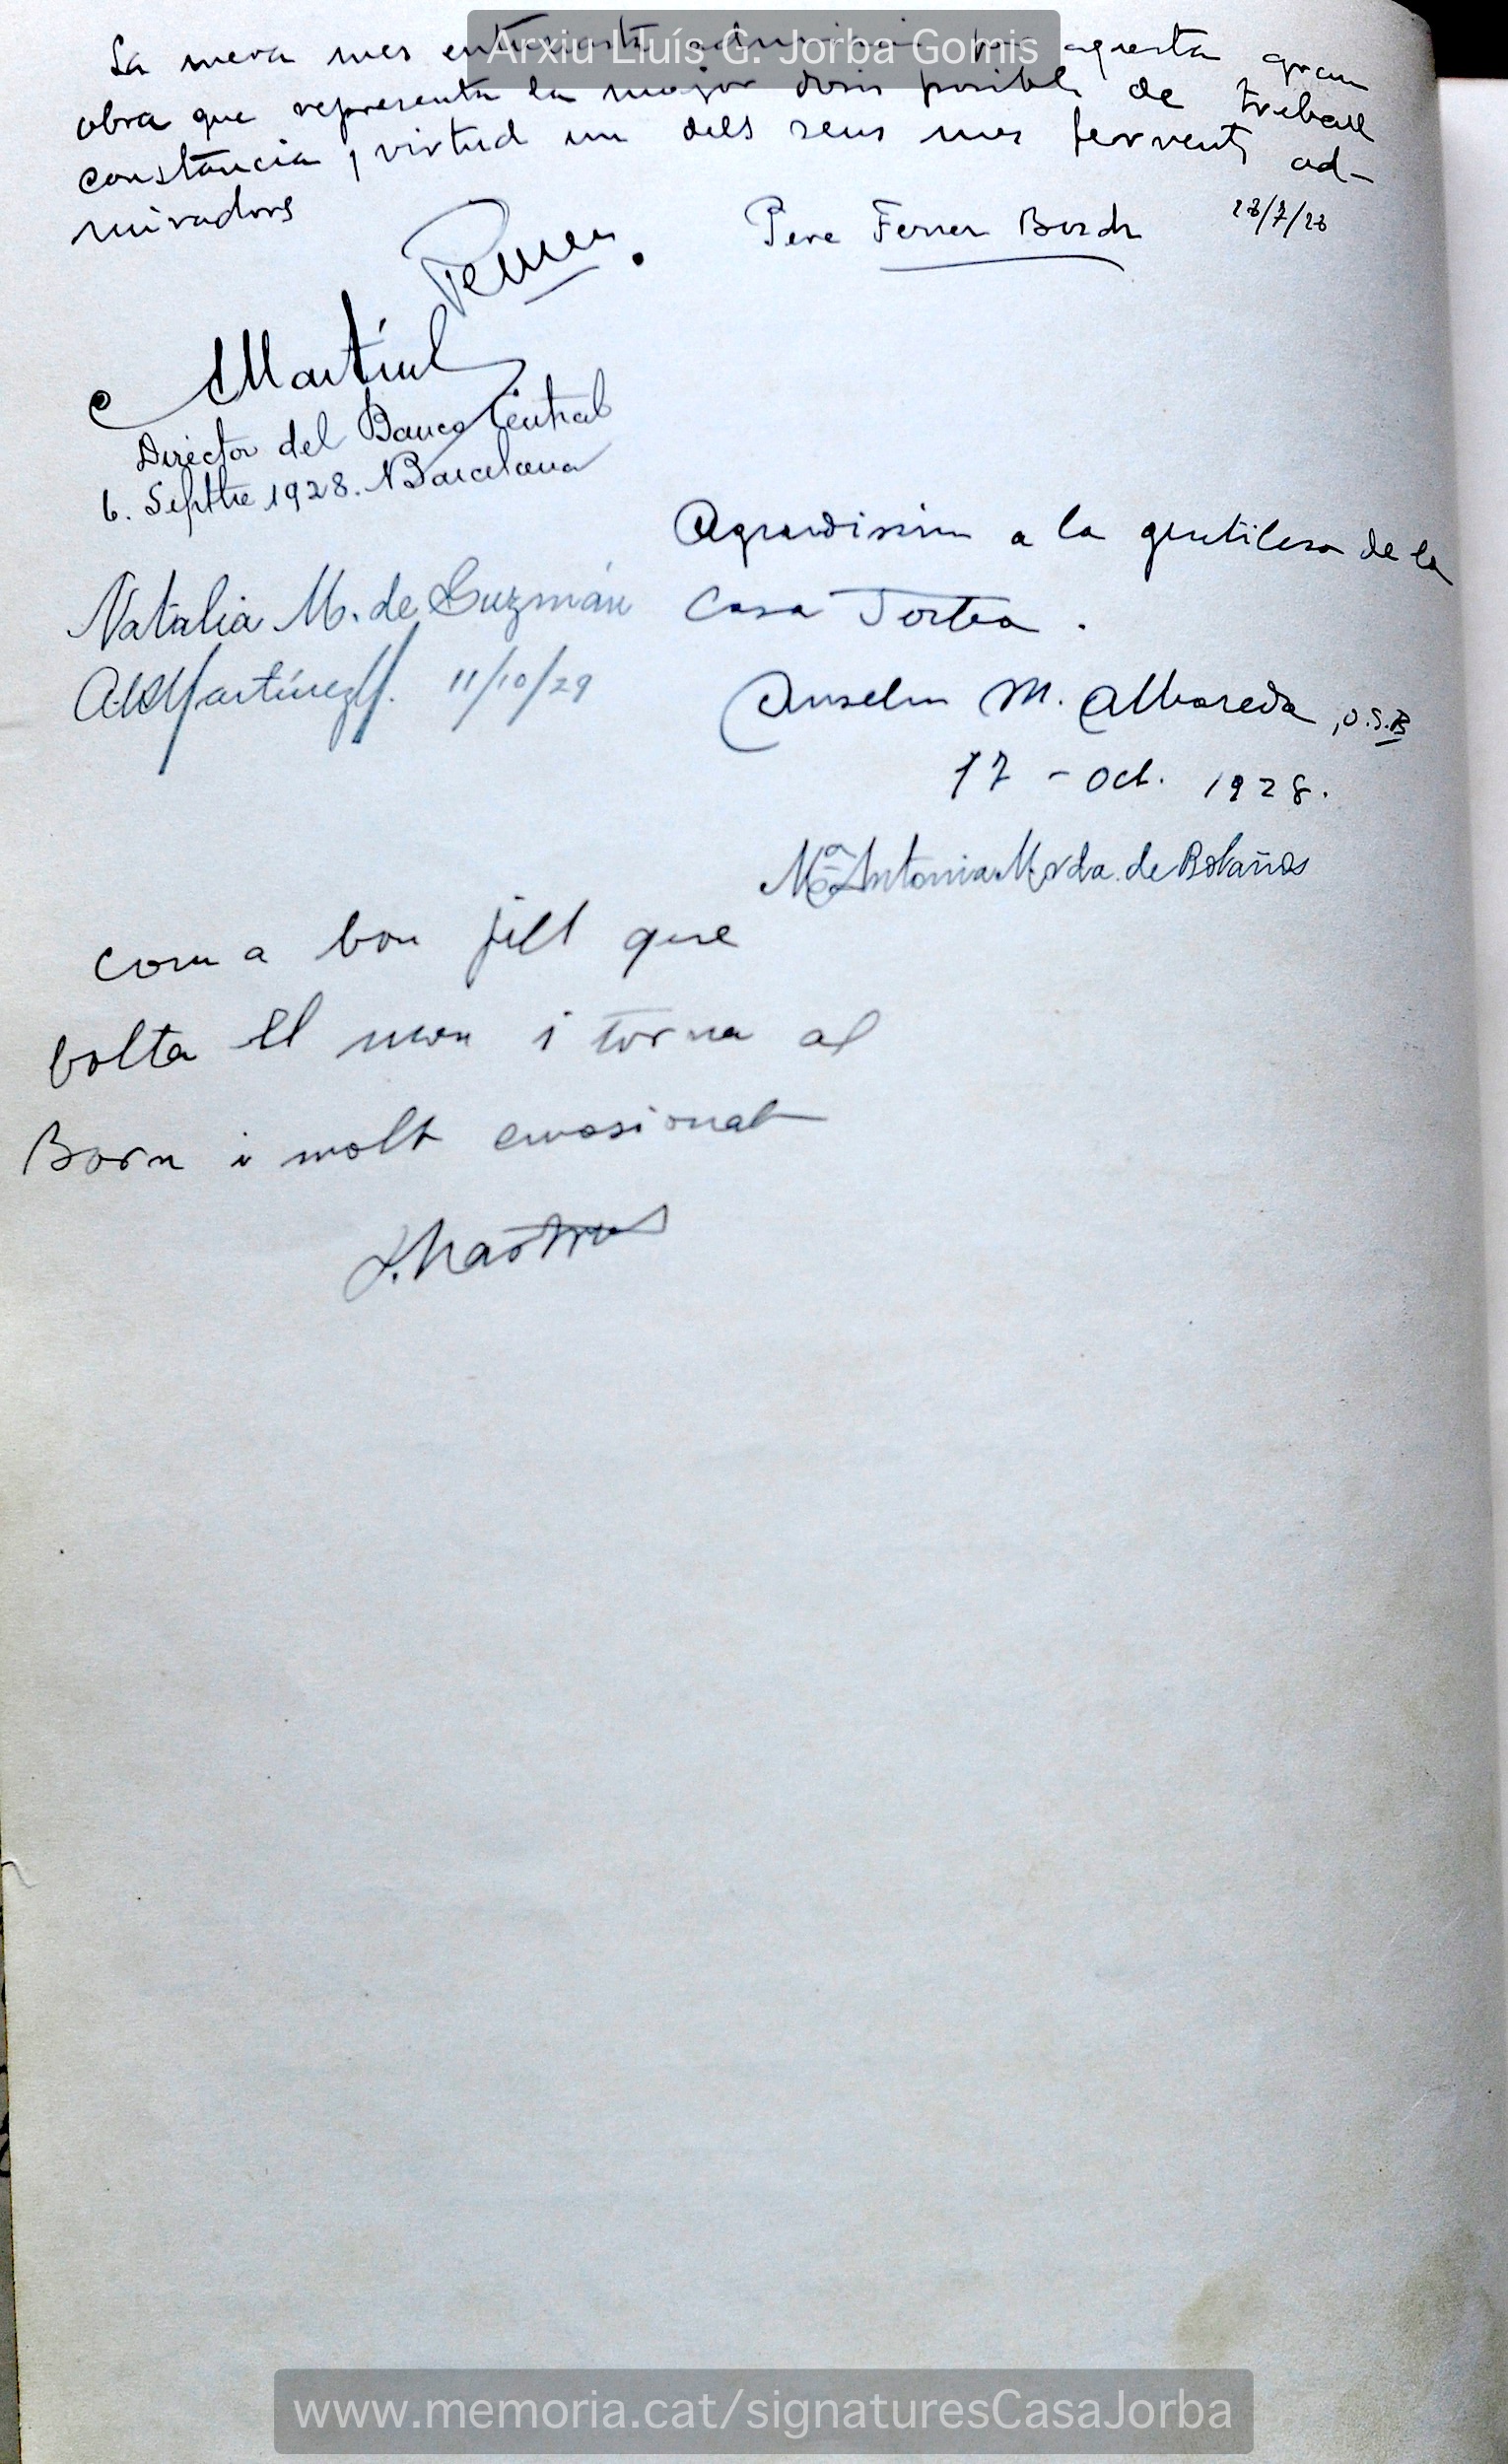 Arxiu Lluís G. Jorba Gomis
La meva mes entusiasta admiració per aquesta gran
obra que representa la major dosis posible de treball
constáncia i virtud un dels seus mes fervents ad-
miradors
Pere Ferrer 28/7/28
Martínez
Director del Banco Central
6. Septbre 1928. Barcelona
Agraidissim a la gentilesa de la
Casa Jorba.
Natalia M. de Guzmán
Martínez 11/10/29
Anselm M. Albareda, O.S.B
17 - Oct. 1928.
Mª Antonia M. vda. de Bolaños
com a bon fill que
bolta el mon i torna al
Born i molt emosionat
www.memoria.cat/signaturesCasaJorba